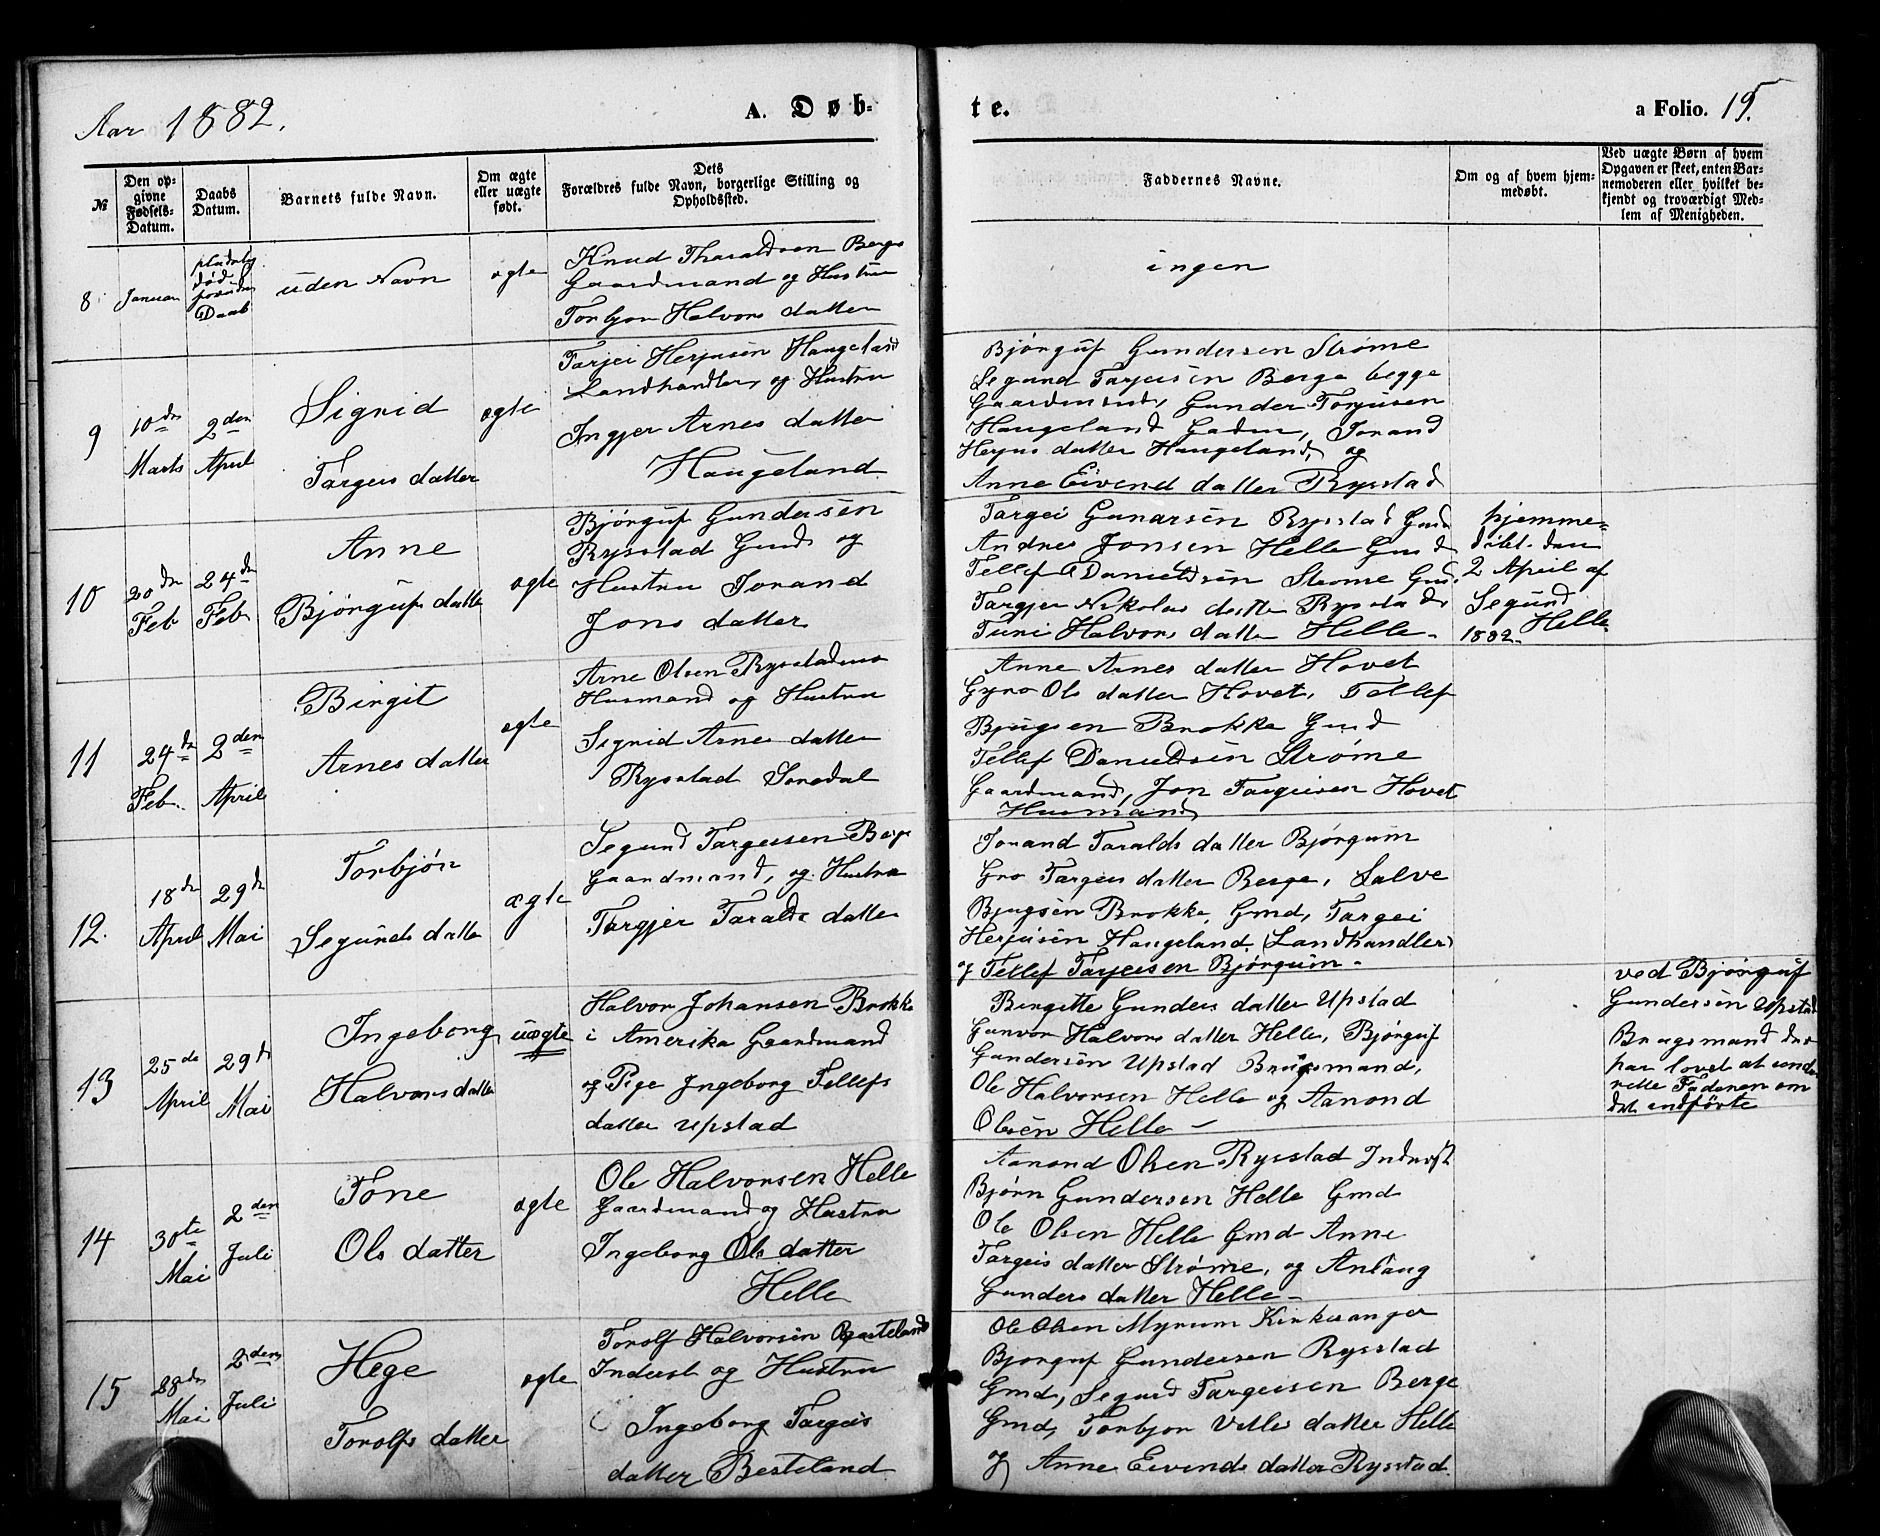 Aar 1882.
A. Døb-
te.
a Folio. 15.
№
Den op-
givne
Fødsels-
Datum.
Daabs
Datum.
Barnets fulde Navn.
Om ægte
eller uægte
født.
Dets
Forældres fulde Navn, borgerlige Stilling og
Opholdssted.
Faddernes Navne.
Om og af hvem hjem-
medøbt.
Ved uægte Børn af hvem
Opgaven er skeet, enten Bar-
nemoderen eller hvilket be-
kjendt og troværdigt Med-
lem af Menigheden.
8
Januar
død
Daab
uden Navn
ægte
Knud Tharaldsen Berge
Gaardmand og Hustru
Torbjør Halvors datter
ingen
9
10de
Marts
2den
April
Sigrid
Targeis datter
ægte
Tarjei Herjusen Haugeland
Landhandler, og Hustru
Ingjer Arnes datter
Haugeland
Bjørguf Gundersen Strøme
Segund Tarjeisen Berge begge
Gaardmænd, Gunder Torjusen
Haugeland Torand
Herjus datter Haugeland, og
Anne Eivend datter Rysstad
10
20de
Feb
24de
Feb
Anne
Bjørgufs datter
ægte
Bjørguf Gundersen
Rysstad Gmd og
Hustru Torand
Jons datter
Targei Gunarsen Rysstad Gmd
Andres Jonsen Helle Gmd
Tellef Danieldsen Strome Gmd.
Targjer Nikolas datter Rysstad
Turi Halvors datter Helle-
hjemme-
døbt den
2 April af
Segund
1882- Helle
11
24de
Feb.
2den
April
Birgit
Arnes datter
ægte
Arne Olsen Rysstadmo
Husmand og Hustru
Sigrid Arnes datter
Rysstad
Anne Arnes datter Hovet
Gyro Ols datter Hovet, Tellef
Bjugsen Brokke Gmd
Tellef Danieldsen Strøme
Gaardmand, Jon Targeisen Hovet
Husmand
12.
18de
April
29de
Mai
Torbjør
Segunds datter
ægte
Segund Targeisen Berge
Gaardmand, og Hustru
Targjer Taralds datter
Torand Taralds datter Bjørgum
Gro Targeis datter Berge, Salve
Bjugsen Brokke, Gmd, Targei
Herjusen Haugeland, (Landhandler)
og Tellef Tarjeisen Bjørgum-
13
25de
April
29de
Mai
Ingeborg
Halvors datter
uægte
Halvor Johansen Brokke
i Amerika Gaardmand
og Pige Ingeborg Tellefs
datter Upstad
Birgitte Gunders datter Upstad
Gunvor Halvors datter Helle, Bjørguf
Gundersen Upstad Brugsmand,
Ole Halvorsen Helle og Aanond
Olsen Helle-
ved Bjørguf
Gundersen Upstad
Brugsmand der
har lovet at under
rette Faderen om
det indførte
14
30te
Mai
2den
Juli
Tone
Ols datter
ægte
Ole Halvorsen Helle
Gaardmand og Hustru
Ingeborg Ols datter
Helle
Aanond Olsen Rysstad
Bjørn Gundersen Helle Gmd
Ole Olsen Helle Gmd Anne
Targeis datter Strøme, og Anlaug
Gunders datter Helle-
15
28de
Mai
2den
Juli
Hege
Torolfs datter
ægte
Torolf Halvorsen
Inderst og Hustru
Ingeborg Targeis
datter Besteland
Ole Olsen Myrum Kirkesanger
Bjorguf Gundersen Rysstad
Gmd, Segurd Targeisen Berge
Gmd, Torbjor datter Helle
og Anne Eivends datter Rysstad.